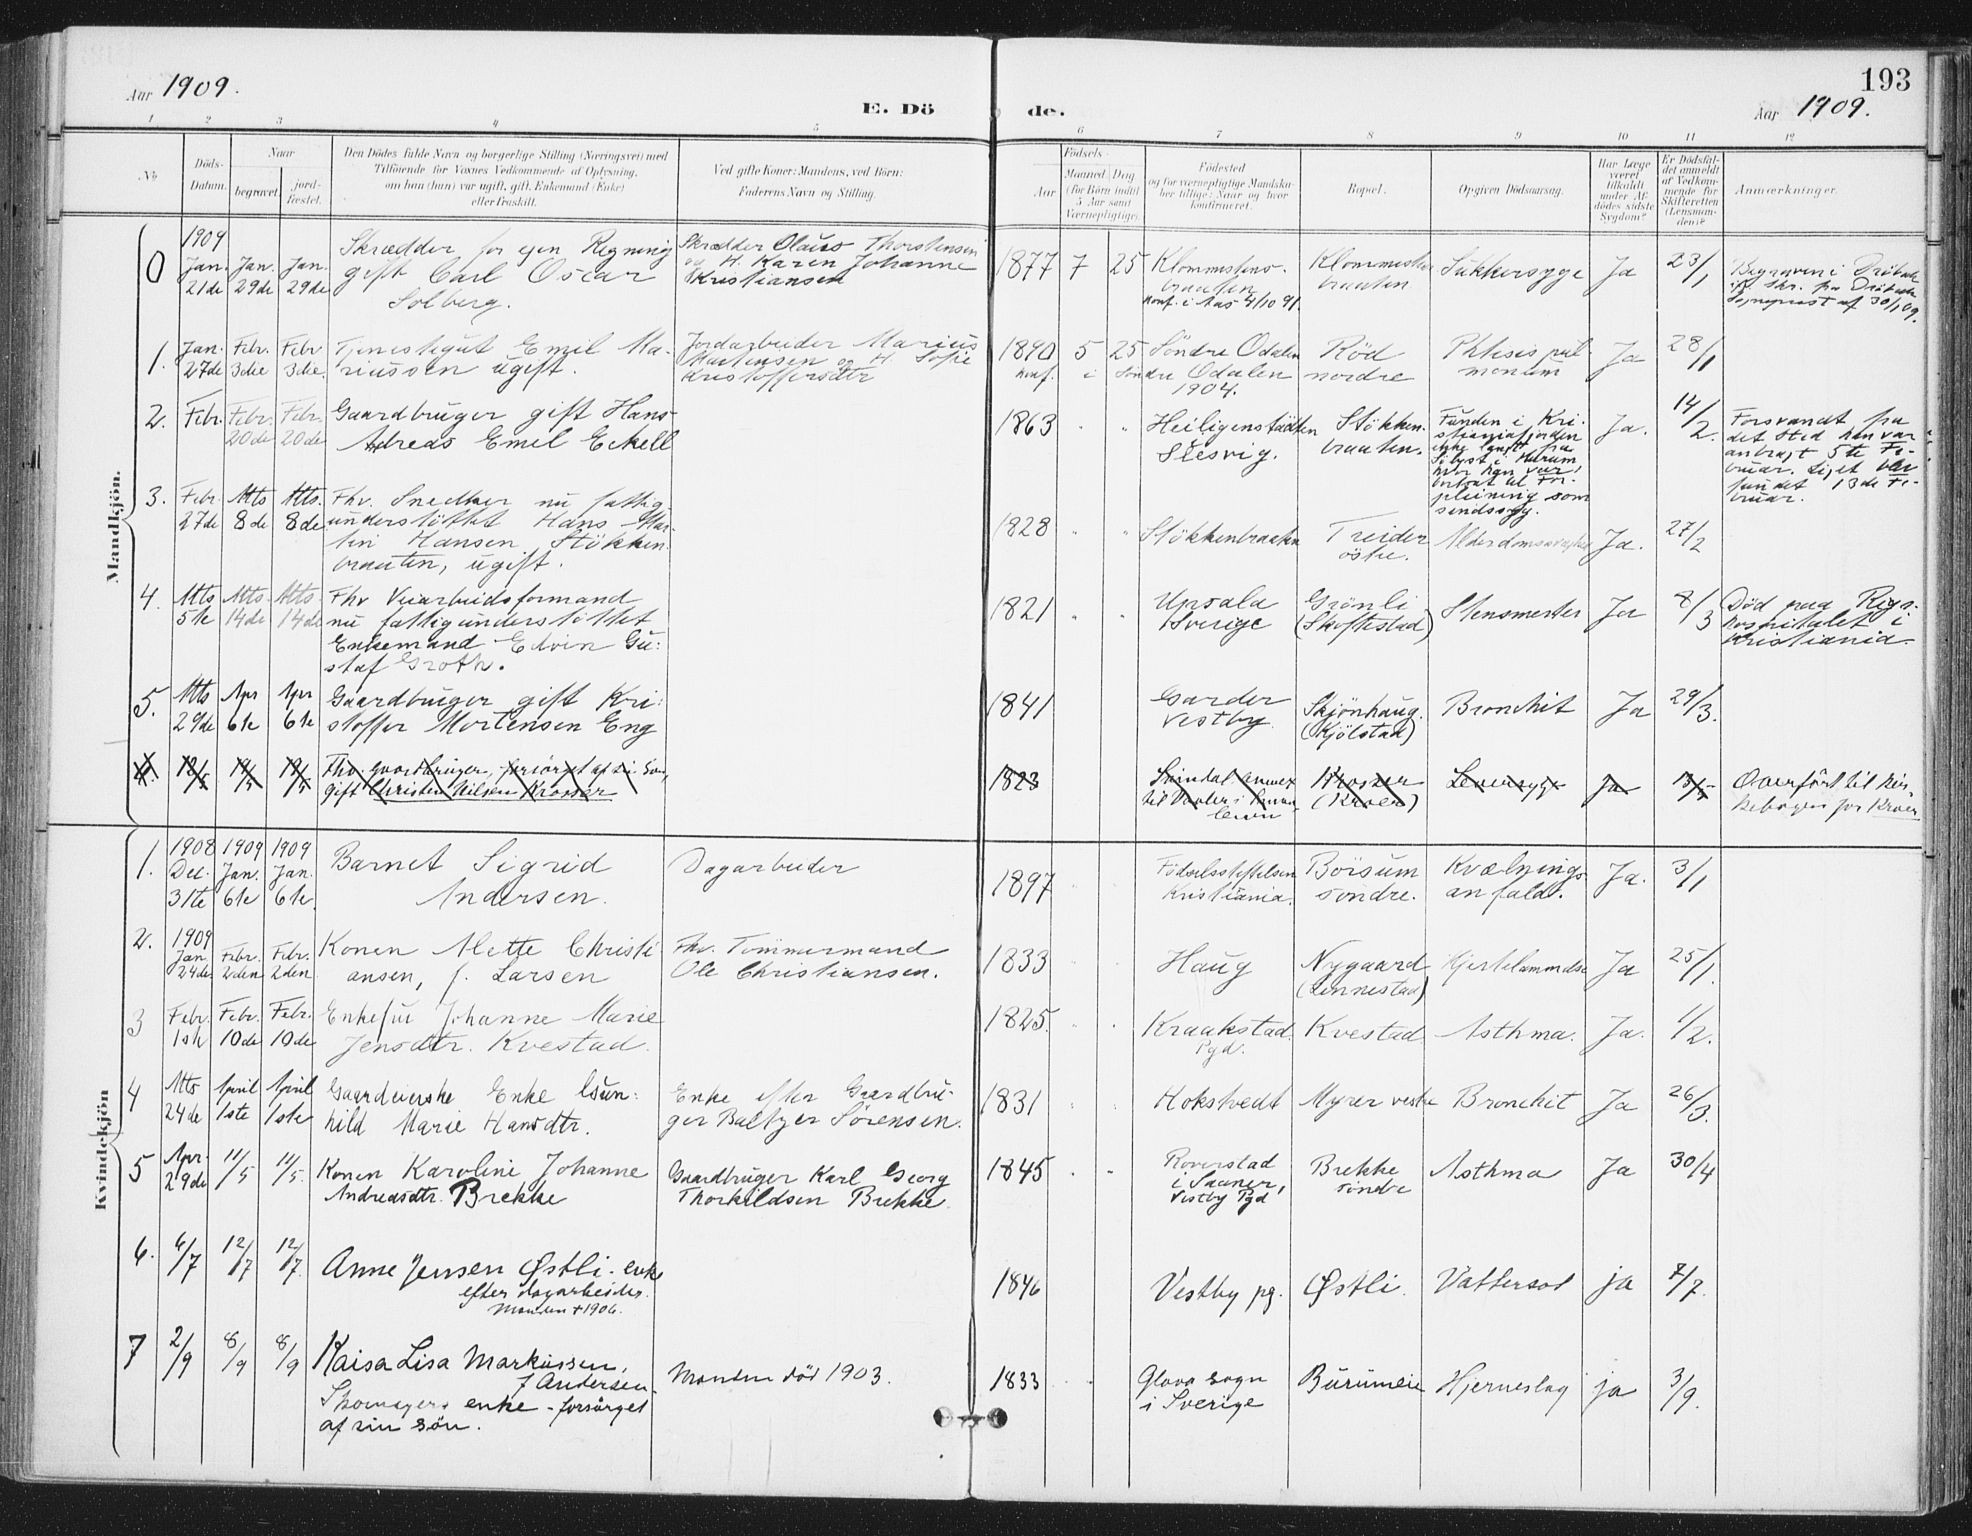 193
Aar 1909.
E. Dö de.
Aar 1909.
1 2 3 4 5 6 7 8 9 10 11 12
No
Döds-Datum.
Naar
begravet.
jord-fæstet.
Den Dödes fulde Navn og borgerlige Stilling (Næringsvei) med
Tilföiende for Voxnes Vedkommende af Oplysning,
om han (hun) var ugift, gift, Enkemand (Enke)
eller fraskilt.
Ved gifte Koner: Mandens, ved Börn:
Faderens Navn og Stilling.
Födsels-
Aar
Maaned Dag
(for Börn indtil
5 Aar samt
Værnepligtige).
Födested
og for værnepligtige Mandska-
ber tillige: Naar og hvor
konfirmeret.
Bopæl.
Opgiven Dödsaarsag.
Har Læge
været
tilkaldt
under Af-
dödes sidste
Sygdom?
Er Dödsfal-
det anmeldt
af Vedkom-
mende for
Skifteretten
(Lensman-
den)?
Anmærkninger.
Mandkjön.
0 1909 Jan. 21de Jan. 29de Jan. 29de
Skrædder for egen Regning
gift Carl Oscar
Solberg.
Skrædder Olaus Thorstensen
og H. Karen Johanne
Kristiansen
1877 7 25 Klommesten-
braaten
konf. i Aas 4/10 91.
Klommesten
braaten
Sukkersyge Ja 23/1
Begraven i Dröbak
Sogneprest af 30/1 09.
1. Jan. 27de Febr. 3die Febr. 3die
Tjenestegut Emil Ma-
riussen ugift.
Jordarbeider Marius
Martinsen og H. Sofie
Kristoffersdtr
1890 5 25 Söndre Odalen
konf. i Söndre Odalen
1904.
Röd
nordre
Phtisis pul-
monum
Ja 28/1
2. Febr. Febr. 20de Febr. 20de
Gaardbruger gift Hans
Adreas Emil Eckell
1863 " " Heiligenstädten
Slesvig.
Stökken-
braaten.
Funden i Kri-
stianiafjorden
Sindssyg.
Ja. 14/2.
Forsvandt fra
det Sted han var
anbragt 5te Fe-
bruar. Liget blev
fundet 13de Fe-
bruar.
3. Febr. 27de Mts 8de Mts. 8de
Fhv. Snedker nu fattig-
understöttet Hans Mar-
tin Hansen Stökken-
braaten, ugift.
1828 " " Stökkenbraaten
Treider
östre.
Alderdomssvaghed Ja. 27/2
4. Mts 5te Mts. 14de Mts. 14de
Fhv Veiarbeidsformand
nu fattigunderstöttet
Enkemand Edvin Gu-
staf Groth.
1821 " " Upsala
Sverige
Grönli
(Skoftestad)
Stensmerter Ja 8/3
Död paa Rigs-
hospitalet i
Kristiania.
5. Mts 29de Apr 6te Apr 6te
Gaardbruger gift Kri-
stoffer Mortensen Eng
1841 Garder
Vestby.
Skjönhaug.
(Kjölstad)
Bronchit Ja 29/3.
Fhv. gaardbruger, forsörget af sin Sön,
gift Christen Nilsen Krosser
1823
til Vaaler i Smaa-
lenen
Krosser
(Kroer)
Leversyge ja 13/5
Overfört til Kir-
kebogen for Kroer
Kvindekjön
1. 1908 Dec. 31te 1909 Jan. 6te 1909 Jan. 6te.
Barnet Sigrid
Andersen.
Dagarbeider
1897 Födselsstiftelsen
Kristiania.
Börsum
söndre.
Kvælnings-
anfald.
Ja. 3/1
2. 1909 Jan 24de Febr. 2den Febr. 2den
Konen Mette Christi-
ansen, f. Larsen
Fhv. Tömmermand
Ole Christiansen.
1833 Haug
Nygaard
(Linnestad)
Hjertelammelse Ja 25/1.
3 Febr. 1ste Febr. 10de Febr. 10de
Enkefru Johanne Marie
Jensdtr. Kvestad.
1825. Kraakstad
Pgd.
Kvestad Asthma. Ja. 1/2.
4 Mts 24de April 1ste April 1ste
Gaardeierske Enke Gun-
hild Marie Hansdtr.
Enke efter Gaardbru-
ger Baltzer Sörensen.
1831 Hokstvedt Myrer vestre Bronchit Ja 26/3.
5 Apr. 29de 11/5 11/5.
Konen Karoline Johanne
Andreasdtr. Brekke
Gaardbruger Karl Georg
Thorkildsen Brekke.
1845 Roverstad
i Saaner,
Vestby Pgd
Brekke
söndre
Asthma Ja 30/4
6. 6/7 12/7 12/7.
Anne Jensen Østli. enke
efter dagarbeider.
Manden + 1906.
1846 Vestby pg. Østli. Vattersot ja 7/7.
7 2/9 8/9 8/9
Kaisa Lisa Markussen,
f Andersen.
Skomagers enke - forsörget
af sin sön.
Manden död 1903.
1833 Glava sogn
i Sverige
Burumeie Hjerneslag ja 3/9.